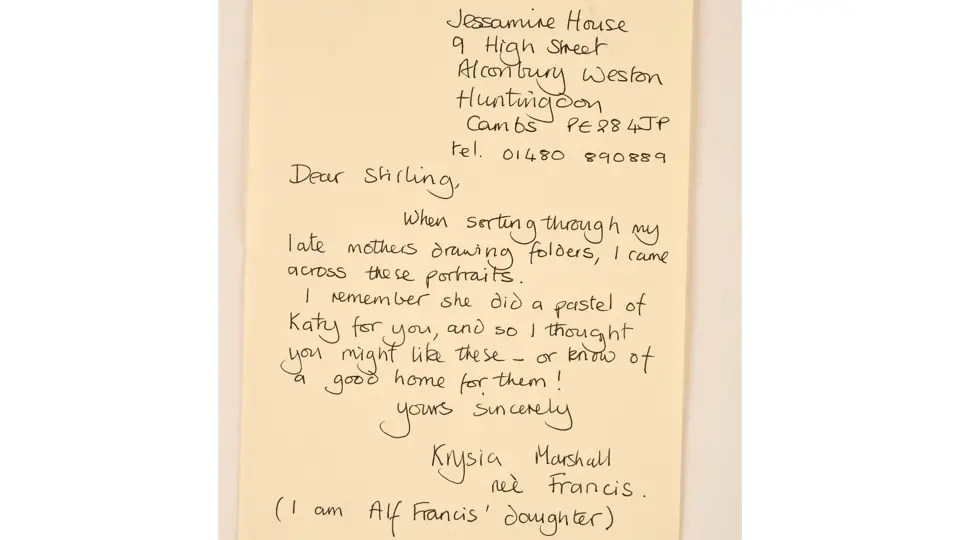 Jessamine House
9 High Street
Alconbury Weston
Huntingdon
Cambs PE28 4JP
tel. 01480 890889
Dear Stirling,
When sorting through my
late mothers drawing folders, I came
across these portraits.
I remember she did a pastel of
Katy for you, and so I thought
you might like these – or know of
a good home for them!
yours sincerely
Krysia Marshall
neè Francis.
(I am Alf Francis' daughter)